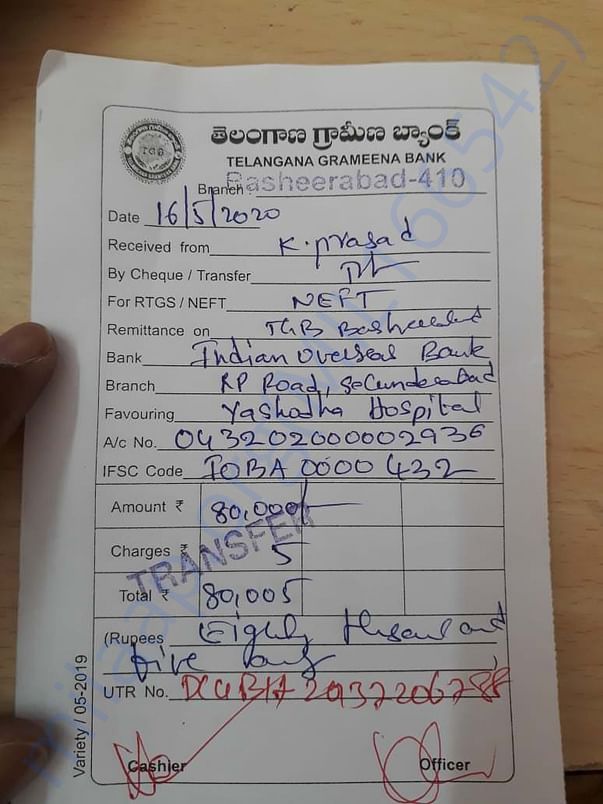 తెలంగాణ గ్రామీణ బ్యాంక్
TGB
TELANGANA GRAMEENA BANK
Branch: Basheerabad-410
Date 16/5/2020
Received from K. prasad
By Cheque / Transfer
For RTGS / NEFT NEFT
Remittance on TGB
Bank Indian overseas Bank
Branch RP Road, Secunderabad
Favouring Yashodha Hospital
A/c No. 043202000002936
IFSC Code IOBA 0000 432
Amount ₹ 80,000/-
Charges ₹ 5
TRANSFER
Total ₹ 80,005
(Rupees Eighty Thousand and
five only )
UTR No.
Cashier Officer
Variety / 05-2019